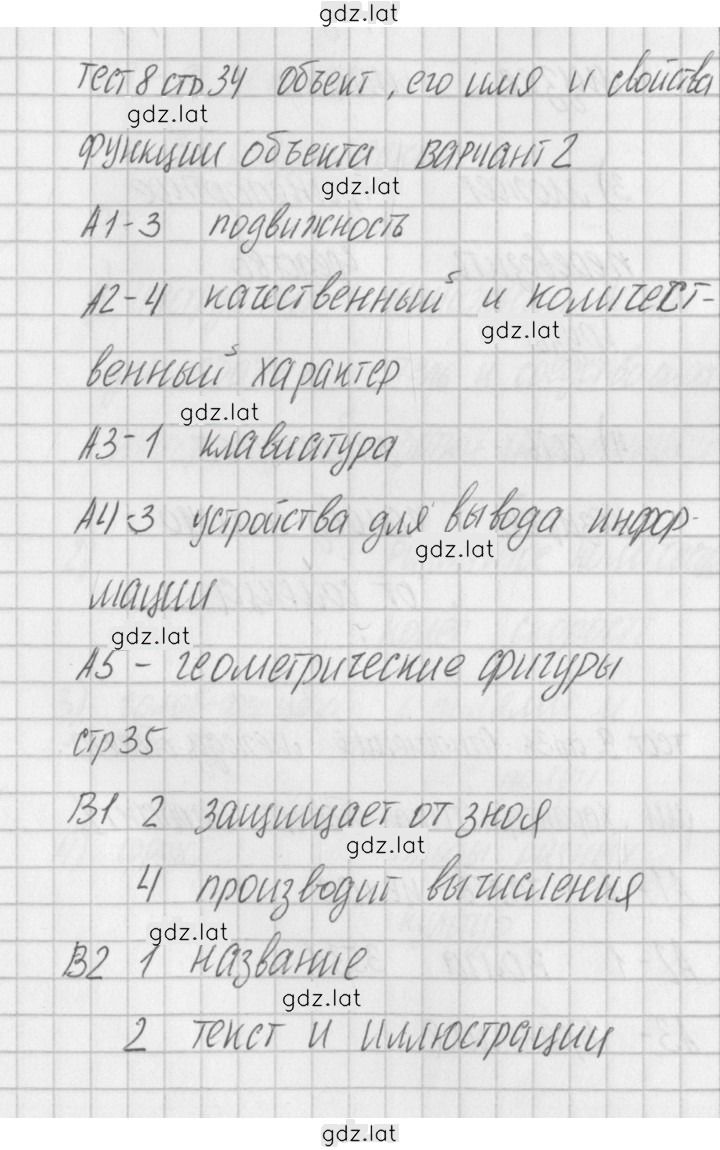 gdz.lat
тест 8 стр 34 объект, его имя и свойства
gdz.lat
функции объекта вариант 2
gdz.lat
А1-3 подвижность
А2-4 качественный и количест-
gdz.lat
венный характер
gdz.lat
А3-1 клавиатура
А4-3 устройства для вывода инфор-
gdz.lat
мации
gdz.lat
А5 - геометрические фигуры
стр 35
В1 2 защищает от зноя
gdz.lat
4 производит вычисления
gdz.lat
В2 1 название
gdz.lat
2 текст и иллюстрации
gdz.lat